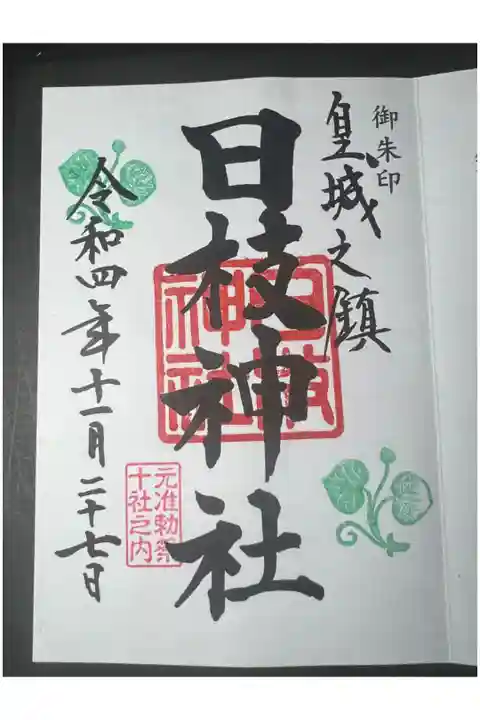 御朱印
皇城之鎮
日枝神社
日枝
神社
元准勅祭
十社之内
令和四年十一月二十七日